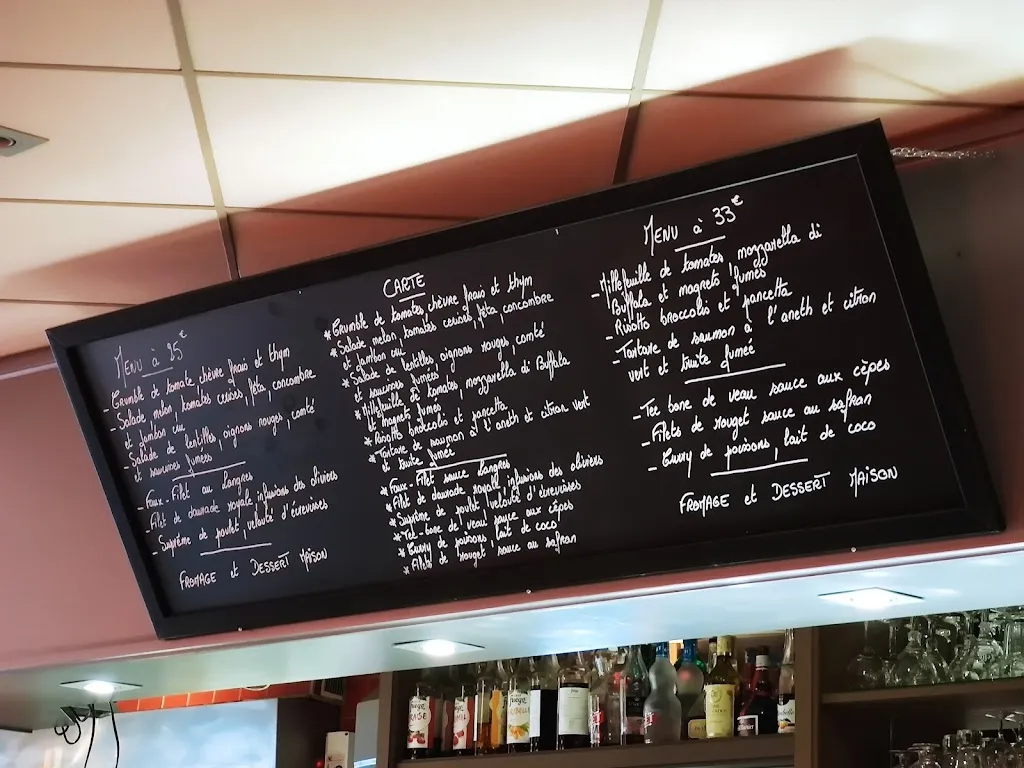 MENU à 25€
- Crumble de tomate chèvre frais et thym
- Salade melon, tomates cerises, féta, concombre
et jambon cru
- Salade de lentilles, oignons rouges, comté
et saucisses fumées
- Faux-Filet au Langres
- Filet de daurade royale infusions des oliviers
- Suprême de poulet, velouté d'écrevisses
FROMAGE et DESSERT MAISON
CARTE
* Crumble de tomates, chèvre frais et thym
* Salade melon, tomates cerises, féta, concombre
et jambon cru
* Salade de lentilles oignons rouges, comté
et saucisses fumées
* Millefeuille de tomates, mozzarella di Buffala
et magrets fumés
* Risotto broccolis et pancetta
* Tartare de saumon à l'aneth et citron vert
et truite fumée
* Faux-Filet sauce Langres
* Filet de daurade royale infusions des oliviers
* Suprême de poulet, velouté d'écrevisses
* Tee-bone de veau sauce aux cèpes
* Curry de poissons, lait de coco
* Filets de rouget sauce au safran
MENU à 33€
- Millefeuille de tomates, mozzarella di
Buffala et magrets fumés
- Risotto broccolis et pancetta
- Tartare de saumon à l'aneth et citron
vert et truite fumée
- Tee bone de veau sauce aux cèpes
- Filets de rouget sauce au safran
- Curry de poissons, lait de coco
FROMAGE et DESSERT MAISON